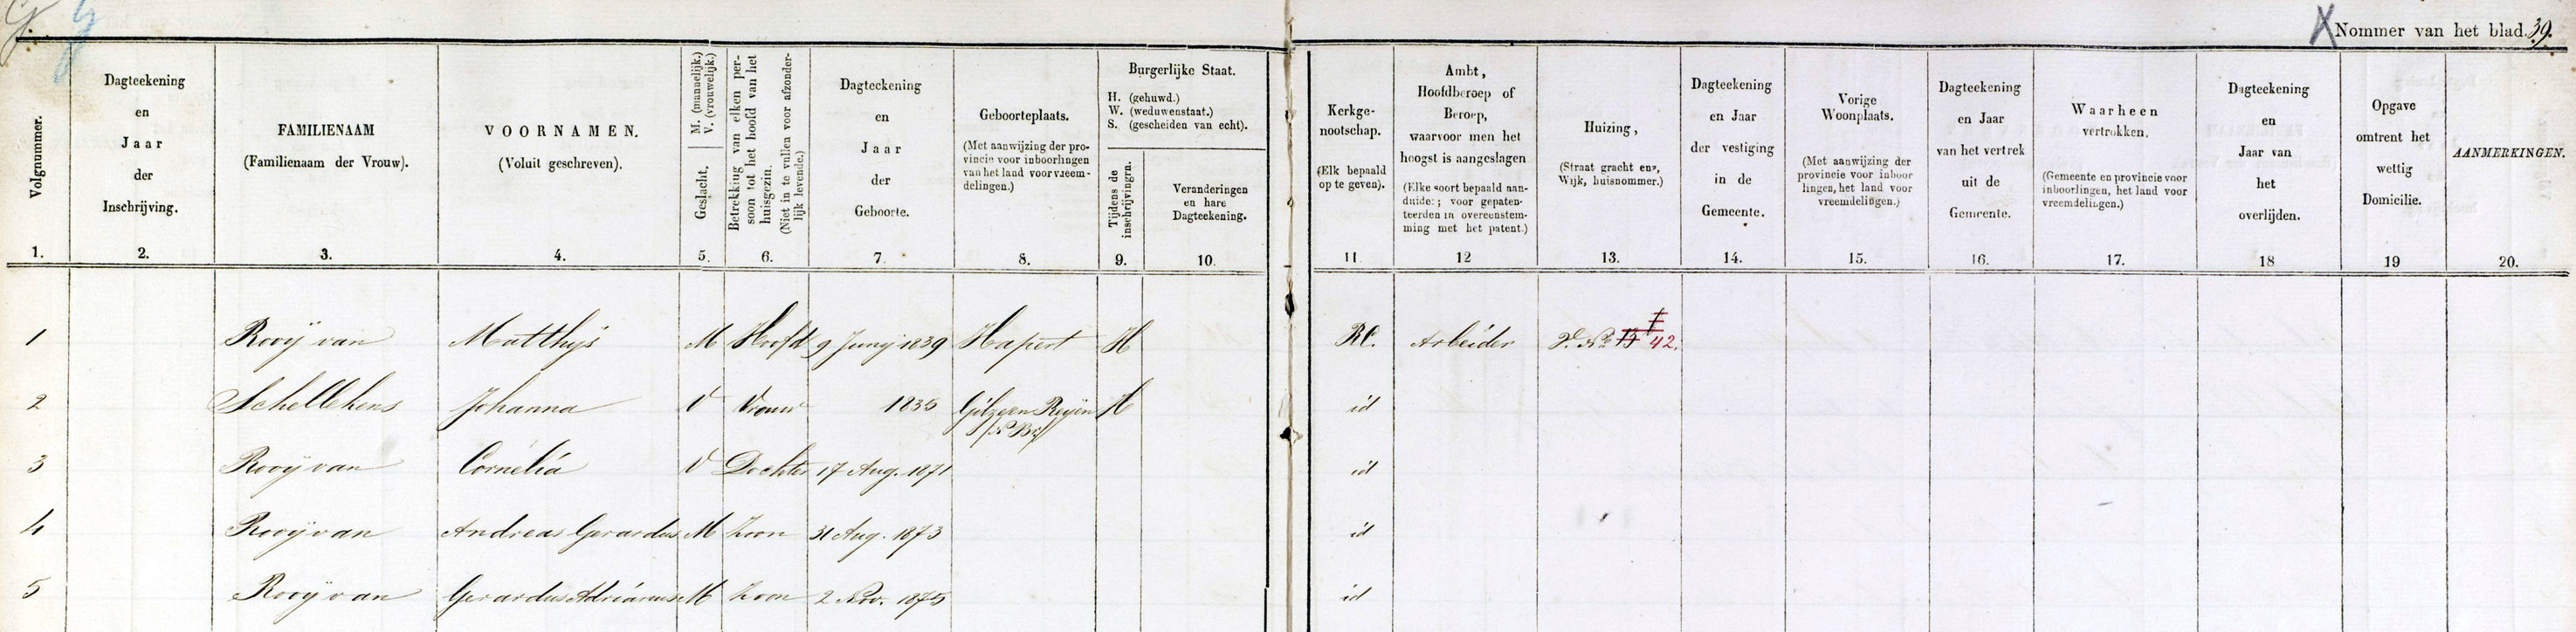 Nommer van het blad. 39.
Volgnummer.
1.
Dagteekening
en
Jaar
der
Inschrijving.
2.
FAMILIENAAM
(Familienaam der Vrouw).
3.
VOORNAMEN.
(Voluit geschreven).
4.
Geslacht.
M. (mannelijk.)
V. (vrouwelijk.)
5.
Betrekking van elken per-
soon tot het hoofd van het
huisgezin.
(Niet in te vullen voor afzonder-
lijk levende.)
6.
Dagteekening
en
Jaar
der
Geboorte.
7.
Geboorteplaats.
(Met aanwijzing der pro-
vincie voor inboorlingen
van het land voor vreem-
delingen.)
8.
Burgerlijke Staat.
H. (gehuwd.)
W. (weduwenstaat.)
S. (gescheiden van echt).
Tijdens de
inschrijvingrn.
9.
Veranderingen
en hare
Dagteekening.
10.
Kerkge-
nootschap.
(Elk bepaald
op te geven).
11.
Ambt,
Hoofdberoep of
Beroep,
waarvoor men het
hoogst is aangeslagen
(Elke soort bepaald aan-
duide: ; voor gepaten-
teerden in overeenstem-
ming met het patent.)
12
Huizing,
(Straat gracht enz,
Wijk, huisnommer.)
13.
Dagteekening
en Jaar
der vestiging
in de
Gemeente.
14.
Vorige
Woonplaats.
(Met aanwijzing der
provincie voor inboor
lingen, het land voor
vreemdelingen.)
15.
Dagteekening
en Jaar
van het vertrek
uit de
Gemeente.
16.
Waarheen
vertrokken.
(Gemeente en provincie voor
inboorlingen, het land voor
vreemdelingen.)
17.
Dagteekening
en
Jaar van
het
overlijden.
18
Opgave
omtrent het
wettig
Domicilie.
19
AANMERKINGEN.
20.
1 Rooij van Matthijs M Hoofd 9 Junij 1839 Hapert H RC. Arbeider No 15 42.
2 Schellekens Johanna V Vrouw 1835 Gilze en Reijen H id
(N Br)
3 Rooij van Cornelia V Dochter 17 Aug. 1871 id
4 Rooij van Andreas Gerardus M Zoon 31 Aug. 1873 id
5 Rooij van Gerardus Adrianus M Zoon 2 Nov. 1875 id